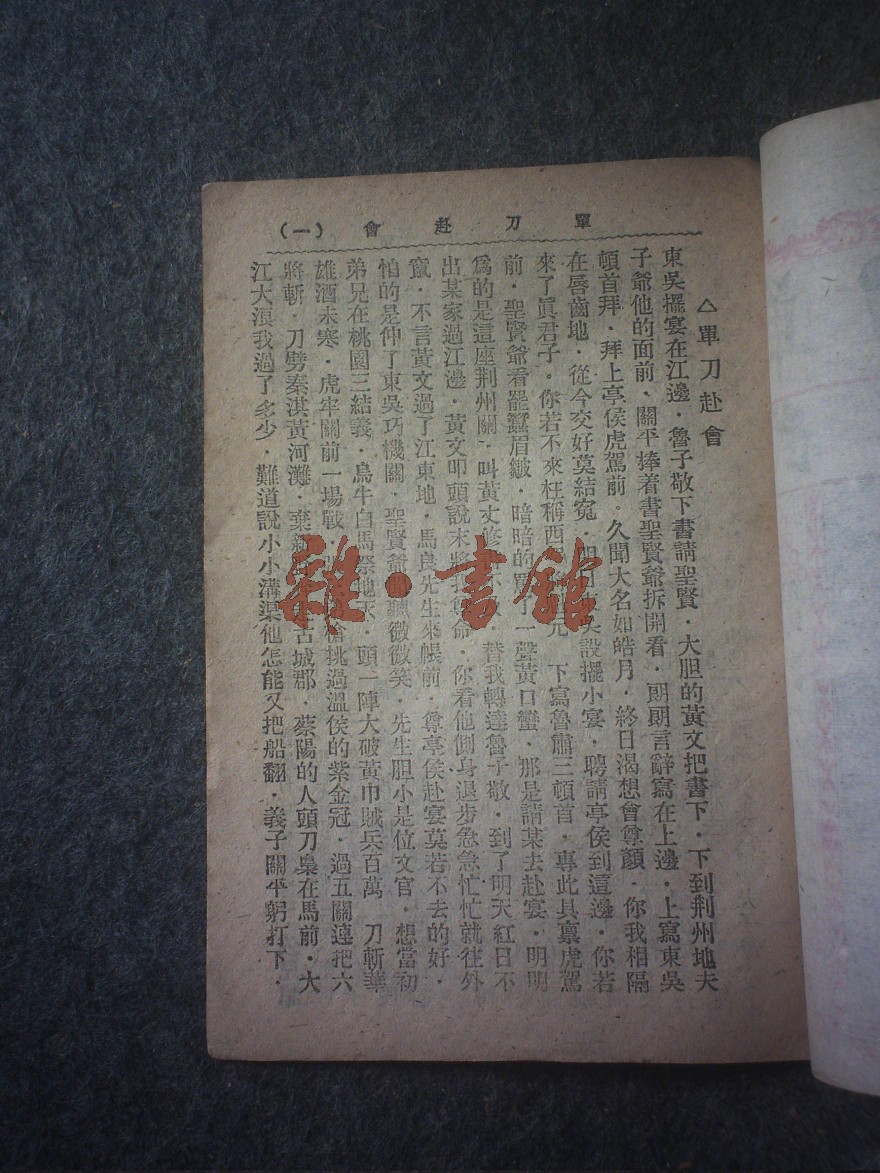 單刀赴會 （一）
△單刀赴會
東吳擺宴在江邊．魯子敬下書請聖賢．大胆的黃文把書下．下到荆州地夫
子爺他的面前．關平捧着書聖賢爺拆開看．朗朗言辭寫在上邊．上寫東吳
頓首拜．拜上亭侯虎駕前．久聞大名如皓月．終日渴想會尊顏．你我相隔
在唇齒地．從今交好莫結寃．明日東吳設擺小宴．聘請亭侯到這邊．你若
來了眞君子．你若不來枉稱西 元 下寫魯肅三頓首．專此具禀虎駕
前．聖賢爺看罷蠶眉皺．暗暗的罵了一聲黃口蠻．那是請某去赴宴．明明
爲的是這座荆州關．叫黃文 替我轉達魯子敬．到了明天紅日不
出某家過江邊．黃文叩頭說末將 命．你看他側身退步急急忙忙就往外
竄．不言黃文過了江東地．馬良先生來帳前．尊亭侯赴宴莫若不去的好．
怕的是仲了東吳巧機關．聖賢爺 聽微微笑．先生胆小是位文官．想當初
弟兄在桃園三結義．烏牛白馬祭地天．頭一陣大破黃巾賊兵百萬 刀斬華
雄酒未寒．虎牢關前一場戰． 槍挑過溫侯的紫金冠．過五關連把六
將斬．刀劈秦淇黃河灘．棄新 古城郡．蔡陽的人頭刀梟在馬前．大
江大浪我過了多少．難道說小小溝渠他怎能又把船翻．義子關平躬打下．
雜·書館